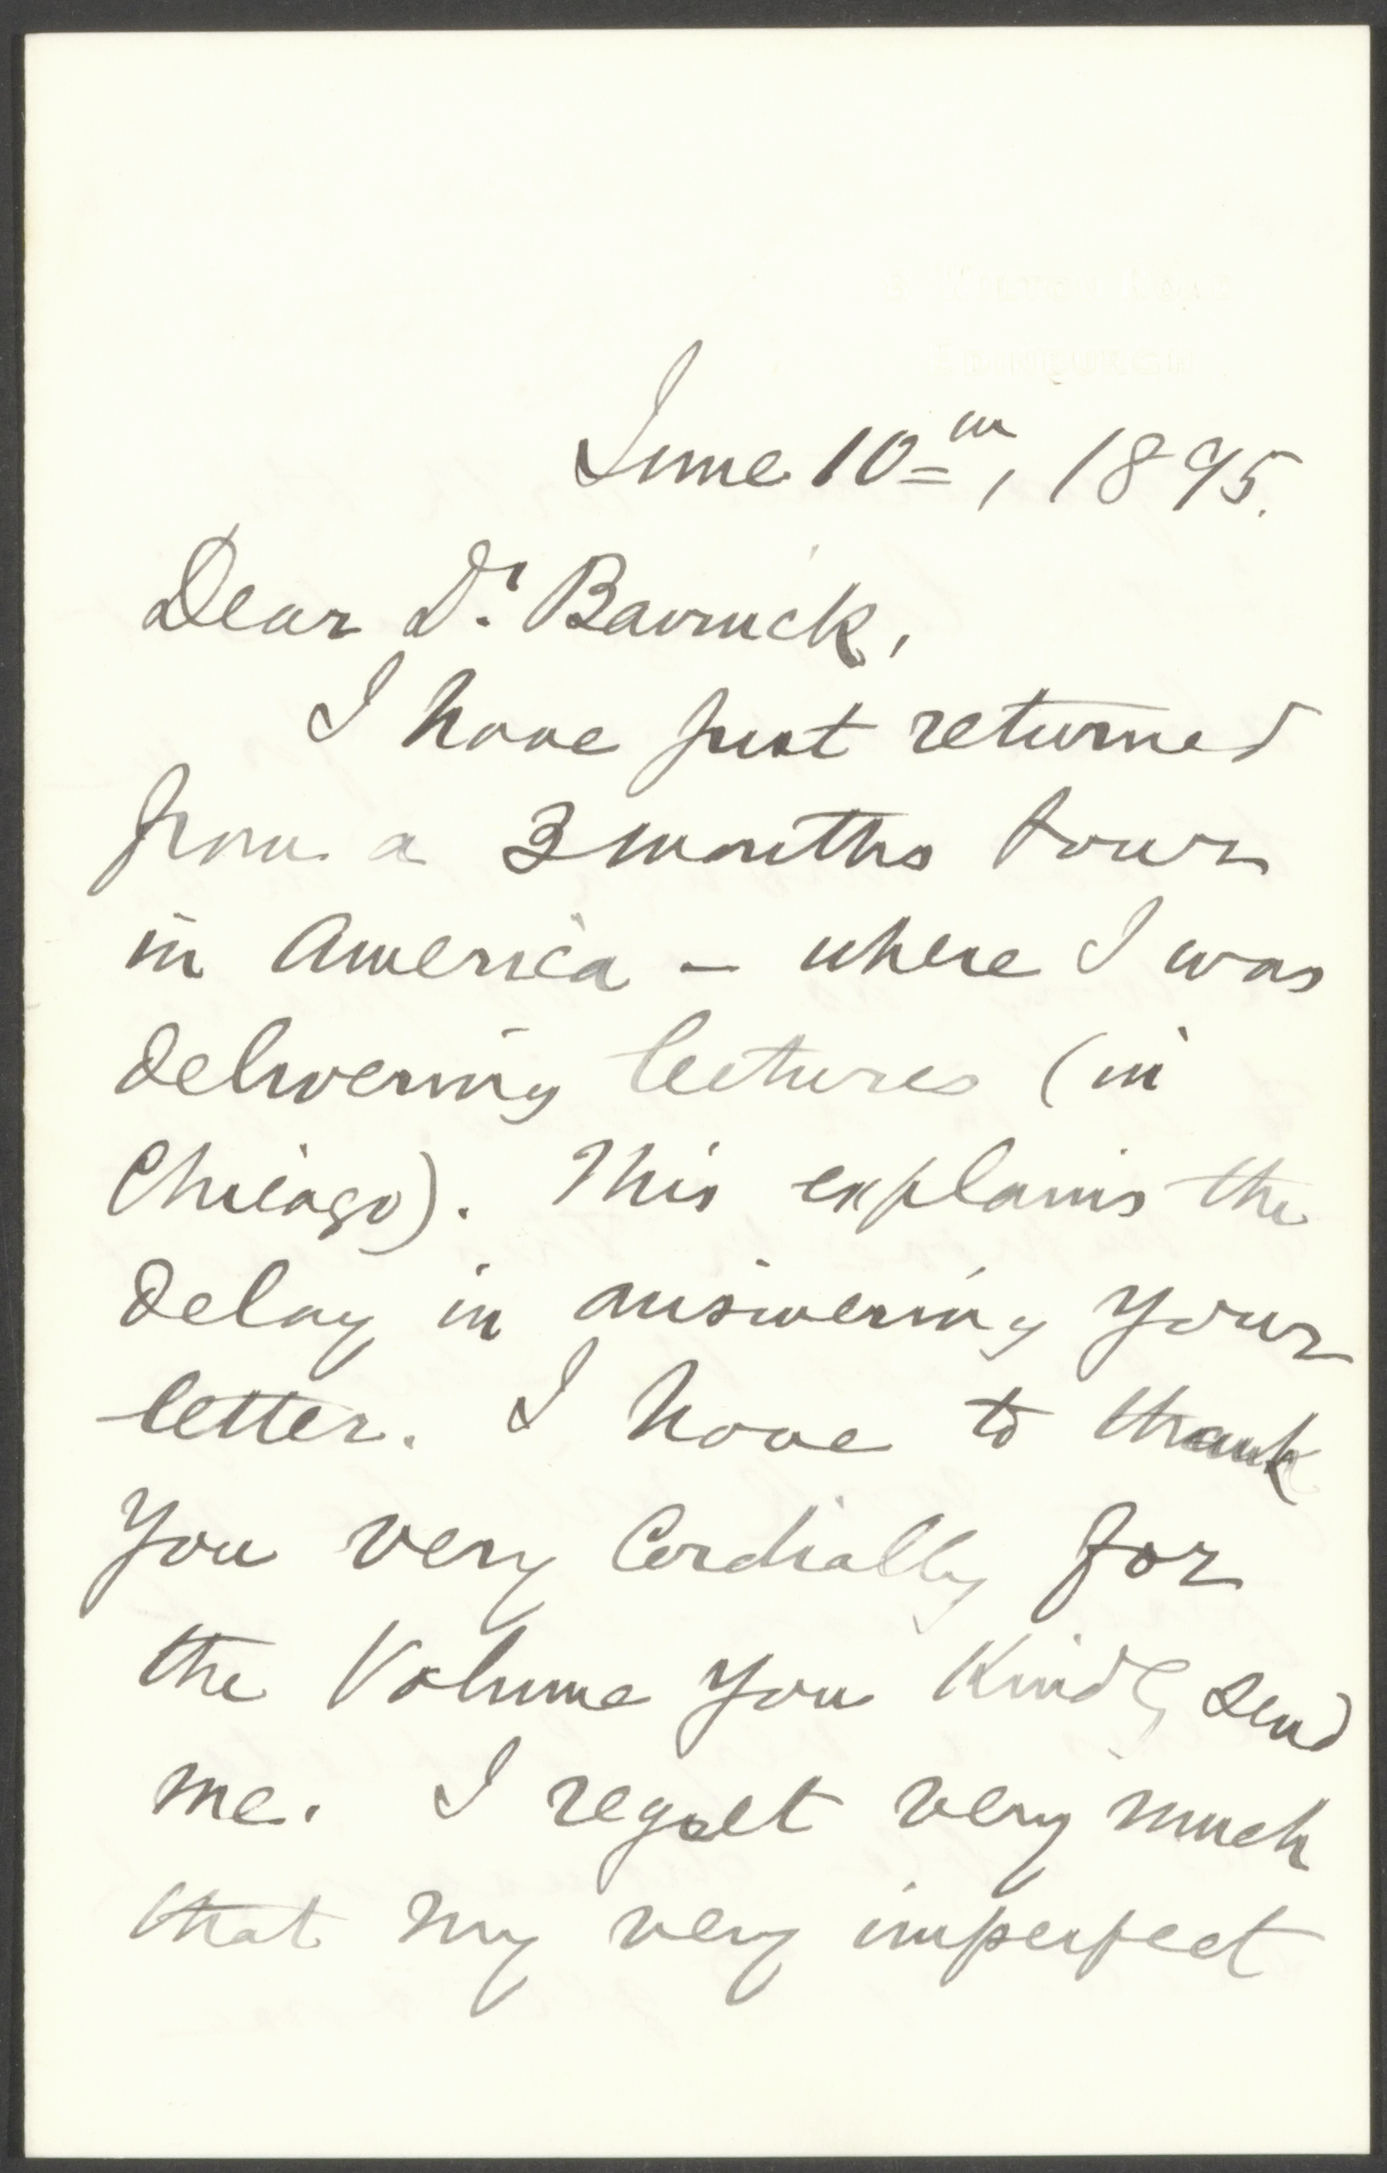 June 10th, 1895.
Dear Dr. Bavinck,
I have just returned
from a 3 months tour
in America - where I was
delivering lectures (in
Chicago). This explains the
delay in answering your
letter. I have to thank
you very cordially for
the Volume you kindly send
me. I regret very much
that my very imperfect